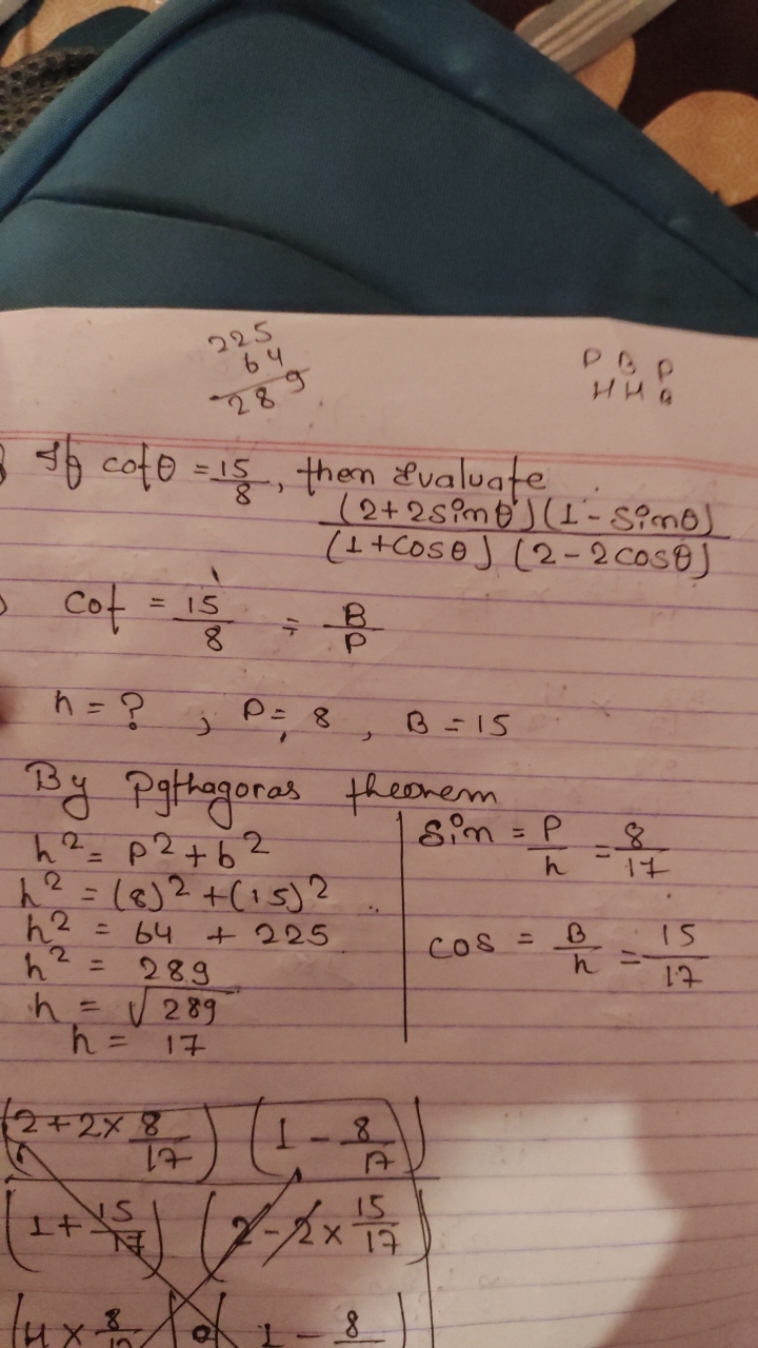 225
64
289
P B P
H H B
If cotθ = 15/8, then Evaluate
(2+2sinθ)(1-sinθ)
(1+cosθ) (2-2cosθ)
cot = 15/8 = B/P
h = ? , P = 8 , B = 15
By Pythagoras theorem
h² = P² + b²
h² = (8)² + (15)²
h² = 64 + 225
h² = 289
h = √289
h = 17
Sin = P/h = 8/17
cos = B/h = 15/17
(2+2×8/17) (1 - 8/17)
(1+15/17) (2-2×15/17)
1 - 8